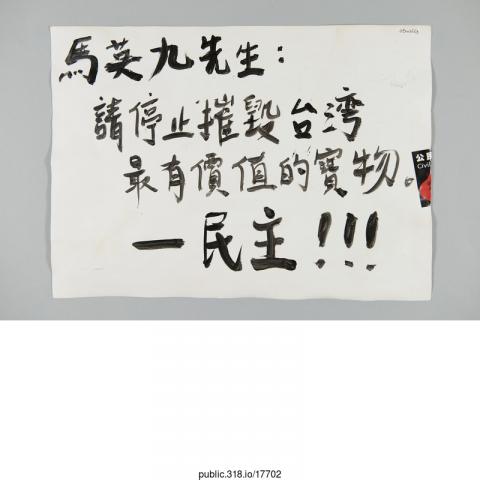 馬英九先生：
請停止摧毀台湾
最有價值的寶物。
一民主!!!
公民
Civi
public.318.io/17702